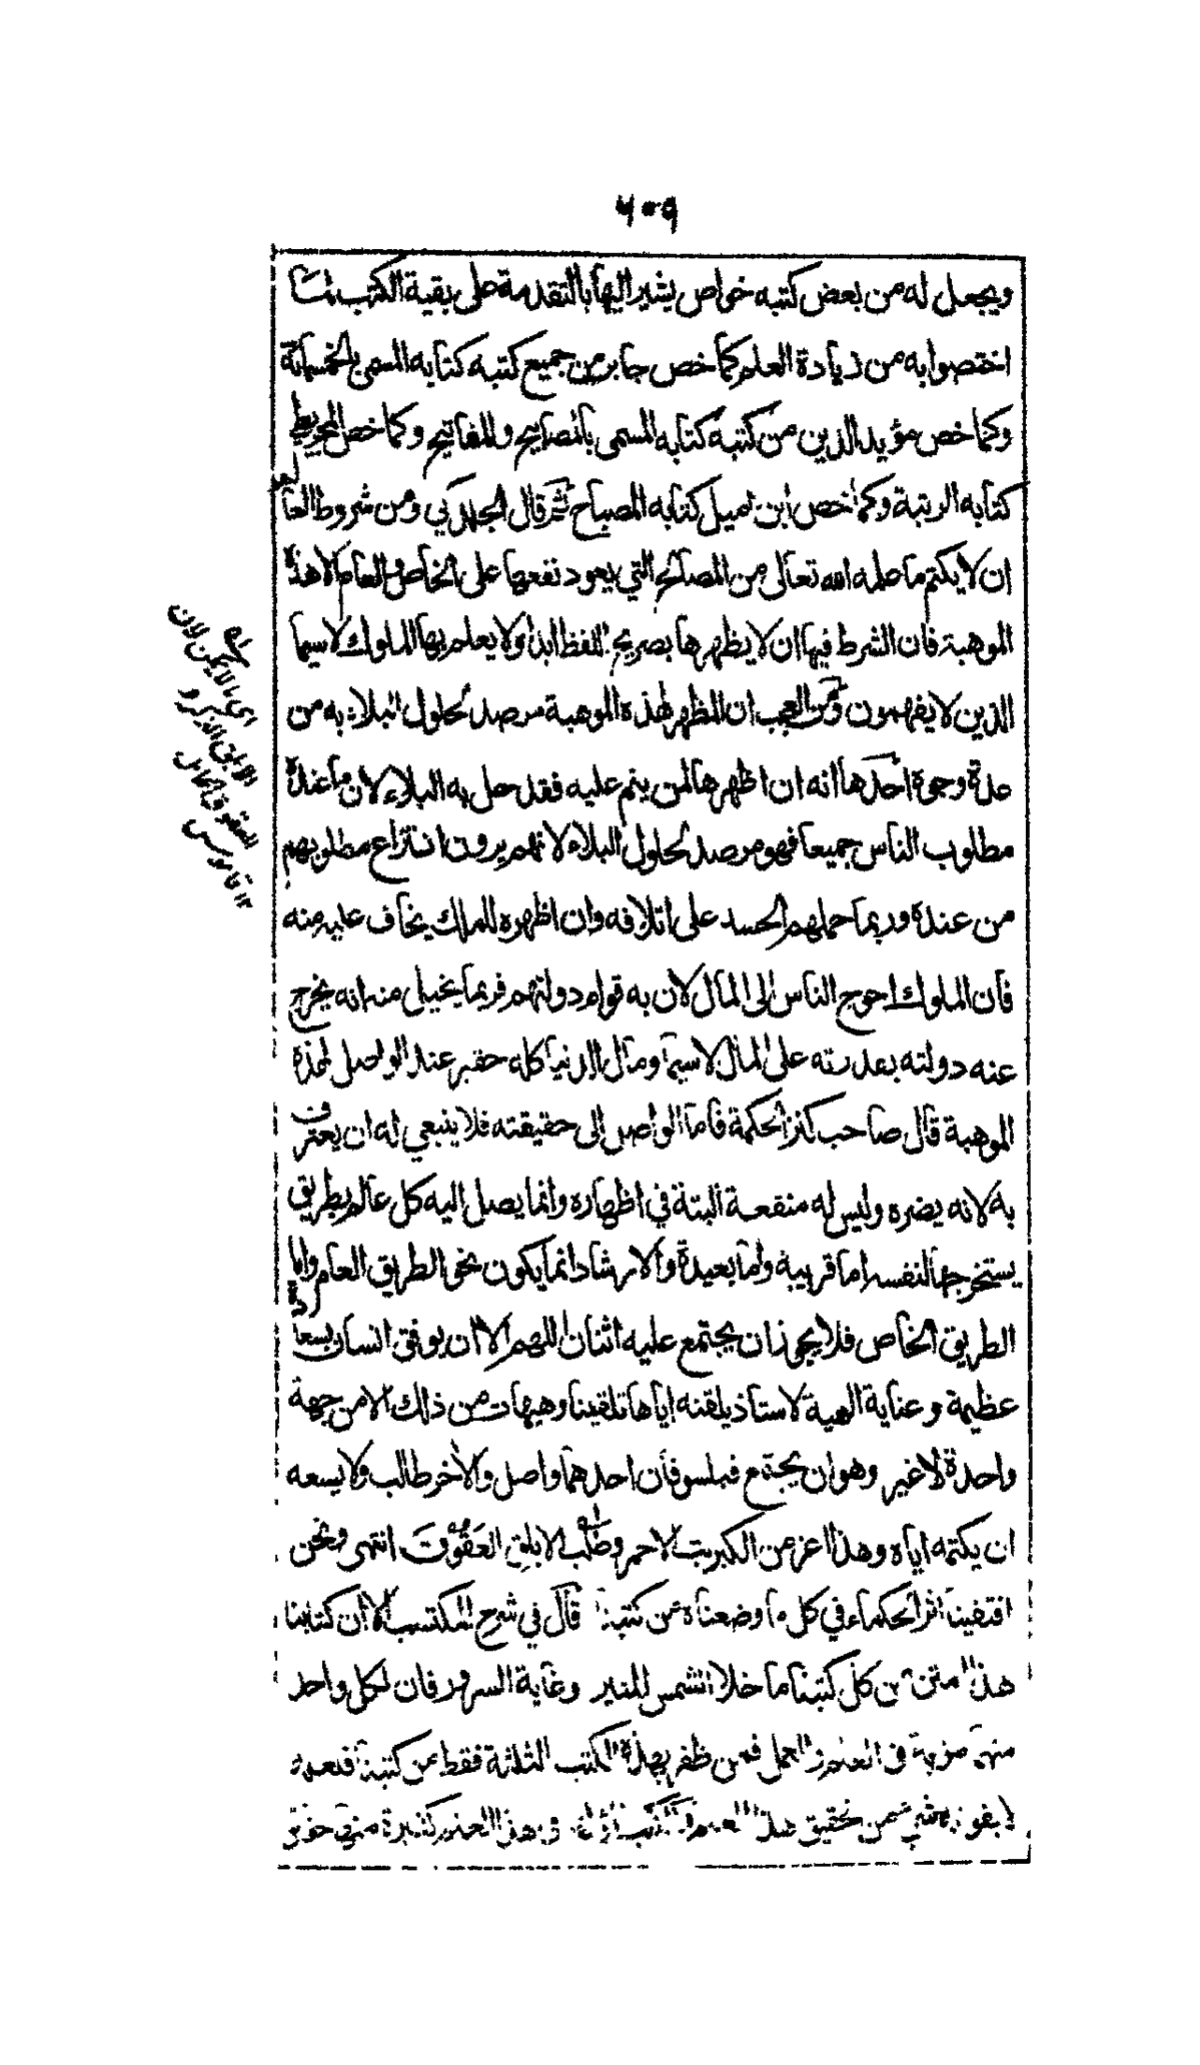 ٤٠٩
ويجعل له من بعض كتبه خواص يشير اليها بالتقدمة على بقية الكتب لما
اختصوا به من زيادة العلم كما خص جابر من جميع كتبه كتابه المسمى بالخمسمائة
وكما خص مؤيد الدين من كتبه كتابه المسمى بالمصابيح والمفاتيح وكما خص المجريطي
كتابه الرتبة وكما خص ابن اميل كتابه المصباح ثم قال الجلدكي ومن شروط العالم
ان لا يكتم ما علمه الله تعالى من المصالح التي يعود نفعها على الخاص والعام الا هذه
الموهبة فان الشرط فيها ان لا يظهرها بصريح اللفظ ابدا ولا يعلم بها الملوك لا سيما
الذين لا يفهمون ومن العجب ان المظهر لهذه الموهبة مرصد لحلول البلاء به من
عدة وجوه احدها انه ان اظهرها لمن ينم عليه فقد حل به البلاء لان ما عنده
مطلوب الناس جميعا فهو مرصد لحلول البلاء لانهم يرون انتزاع مطلوبهم
من عنده وربما حملهم الحسد على اتلافه وان اظهره للملك يخاف عليه منه
فان الملوك احوج الناس الى المال لان به قوام دولتهم فربما يخيل منه انه يخرج
عنه دولته بقدرته على المال لا سيما ومال الدنيا كله حقير عند الواصل لهذه
الموهبة قال صاحب كنز الحكمة فاما الواصل الى حقيقته فلا ينبغي له ان يعترف
به لانه يضره وليس له منفعة البتة في اظهاره وانما يصل اليه كل عالم بطريق
يستخرجها لنفسه اما قريبة واما بعيدة والارشاد انما يكون نحو الطريق العام واما
الطريق الخاص فلا يجوز ان يجتمع عليه اثنان اللهم الا ان يوفق انسان بسعادة
عظيمة وعناية الهية لاستاذ يلقنه اياها تلقينا وهيهات من ذلك الا من جهة
واحدة لا غير وهو ان يجتمع فيلسوفان احدهما واصل والآخر طالب ولا يسعه
ان يكتمه اياه وهذا اعز من الكبريت الاحمر وطلب الابلق العقوق انتهى ونحن
اقتفينا اثر الحكماء في كل ما وضعناه من كتبنا قال في شرح المكتسب الا ان كتابنا
هذا امتن من كل كتبنا ما خلا الشمس المنير وغاية السرور فان لكل واحد
منهما مزية في العلم والعمل فمن ظفر بهذه الكتب الثلاثة فقط من كتبنا فلعله
لا يفوته شيء من تحقيق هذا العلم والكتب المؤلفة في هذا العلم كثيرة منها حقائق
اى ما لا يمكن لان
الابلق الذكر و
العقوق الحامل
١٢ قاموس